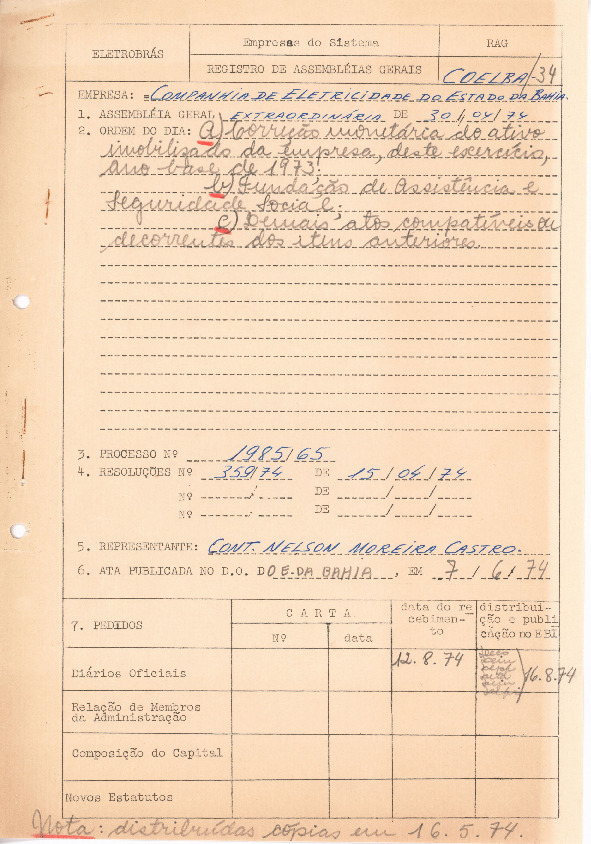 ELETROBRÁS
Empresas do Sistema
RAG
REGISTRO DE ASSEMBLÉIAS GERAIS
COELBA/-34
EMPRESA: COMPANHIA DE ELETRICIDADE DO ESTADO DA BAHIA.
1. ASSEMBLÉIA GERAL EXTRAORDINÁRIA DE 30/04/74
2. ORDEM DO DIA: a) Correição monetária do ativo
imobilisado da empresa, deste exercício,
ano base de 1973;
b) Fundação de Assistência e
Seguridade Social;
c) Demais atos compatíveis ou
decorrentes dos itens anteriores.
3. PROCESSO Nº 1985/65
4. RESOLUÇÕES Nº 359/74 DE 15/04/74
Nº / DE / /
Nº / DE / /
5. REPRESENTANTE: CONT. NELSON MOREIRA CASTRO.
6. ATA PUBLICADA NO D.O. DO E. DA BAHIA, EM 7/6/74
7. PEDIDOS
CARTA
Nº
data
data do re
cebimen-
to
distribui-
ção e publi
cação no EBI
Diários Oficiais
12.8.74
16.8.74
Relação de Membros
da Administração
Composição do Capital
Novos Estatutos
Nota: distribuídas cópias em 16.5.74.